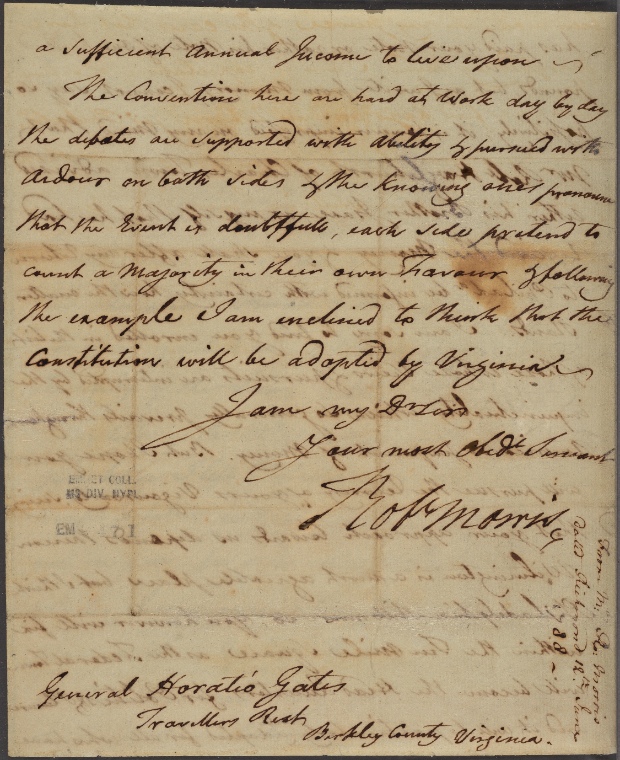 a sufficient Annual Income to live upon
The Convention here are hard at Work day by day
the debates are supported with Ability & pursued with
Ardour on both sides & the Knowing ones pronounce
that the Event is doubtfull, each side pretend to
count a Majority in their own Favour & following
the example I am enclined to think that the
Constitution will be adopted by Virginia
I am my Dr Sir
Your most Obedt Servant
Robt Morris
EMMET COLL.
MS DIV. NYPL
EM
General Horatio Gates
Travellers Rest
Berkley County Virginia.
From Mr Ro Morris
dated Richmond 12th June
1788